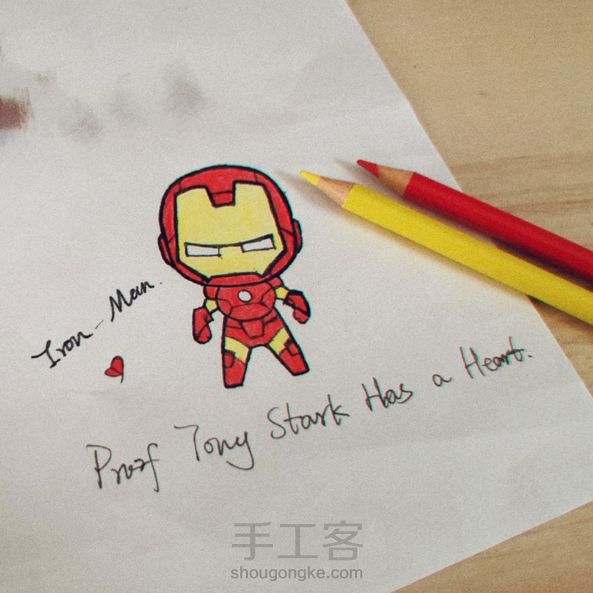 Iron-Man.
Prof Tony Stark Has a Heart.
手工客
shougongke.com